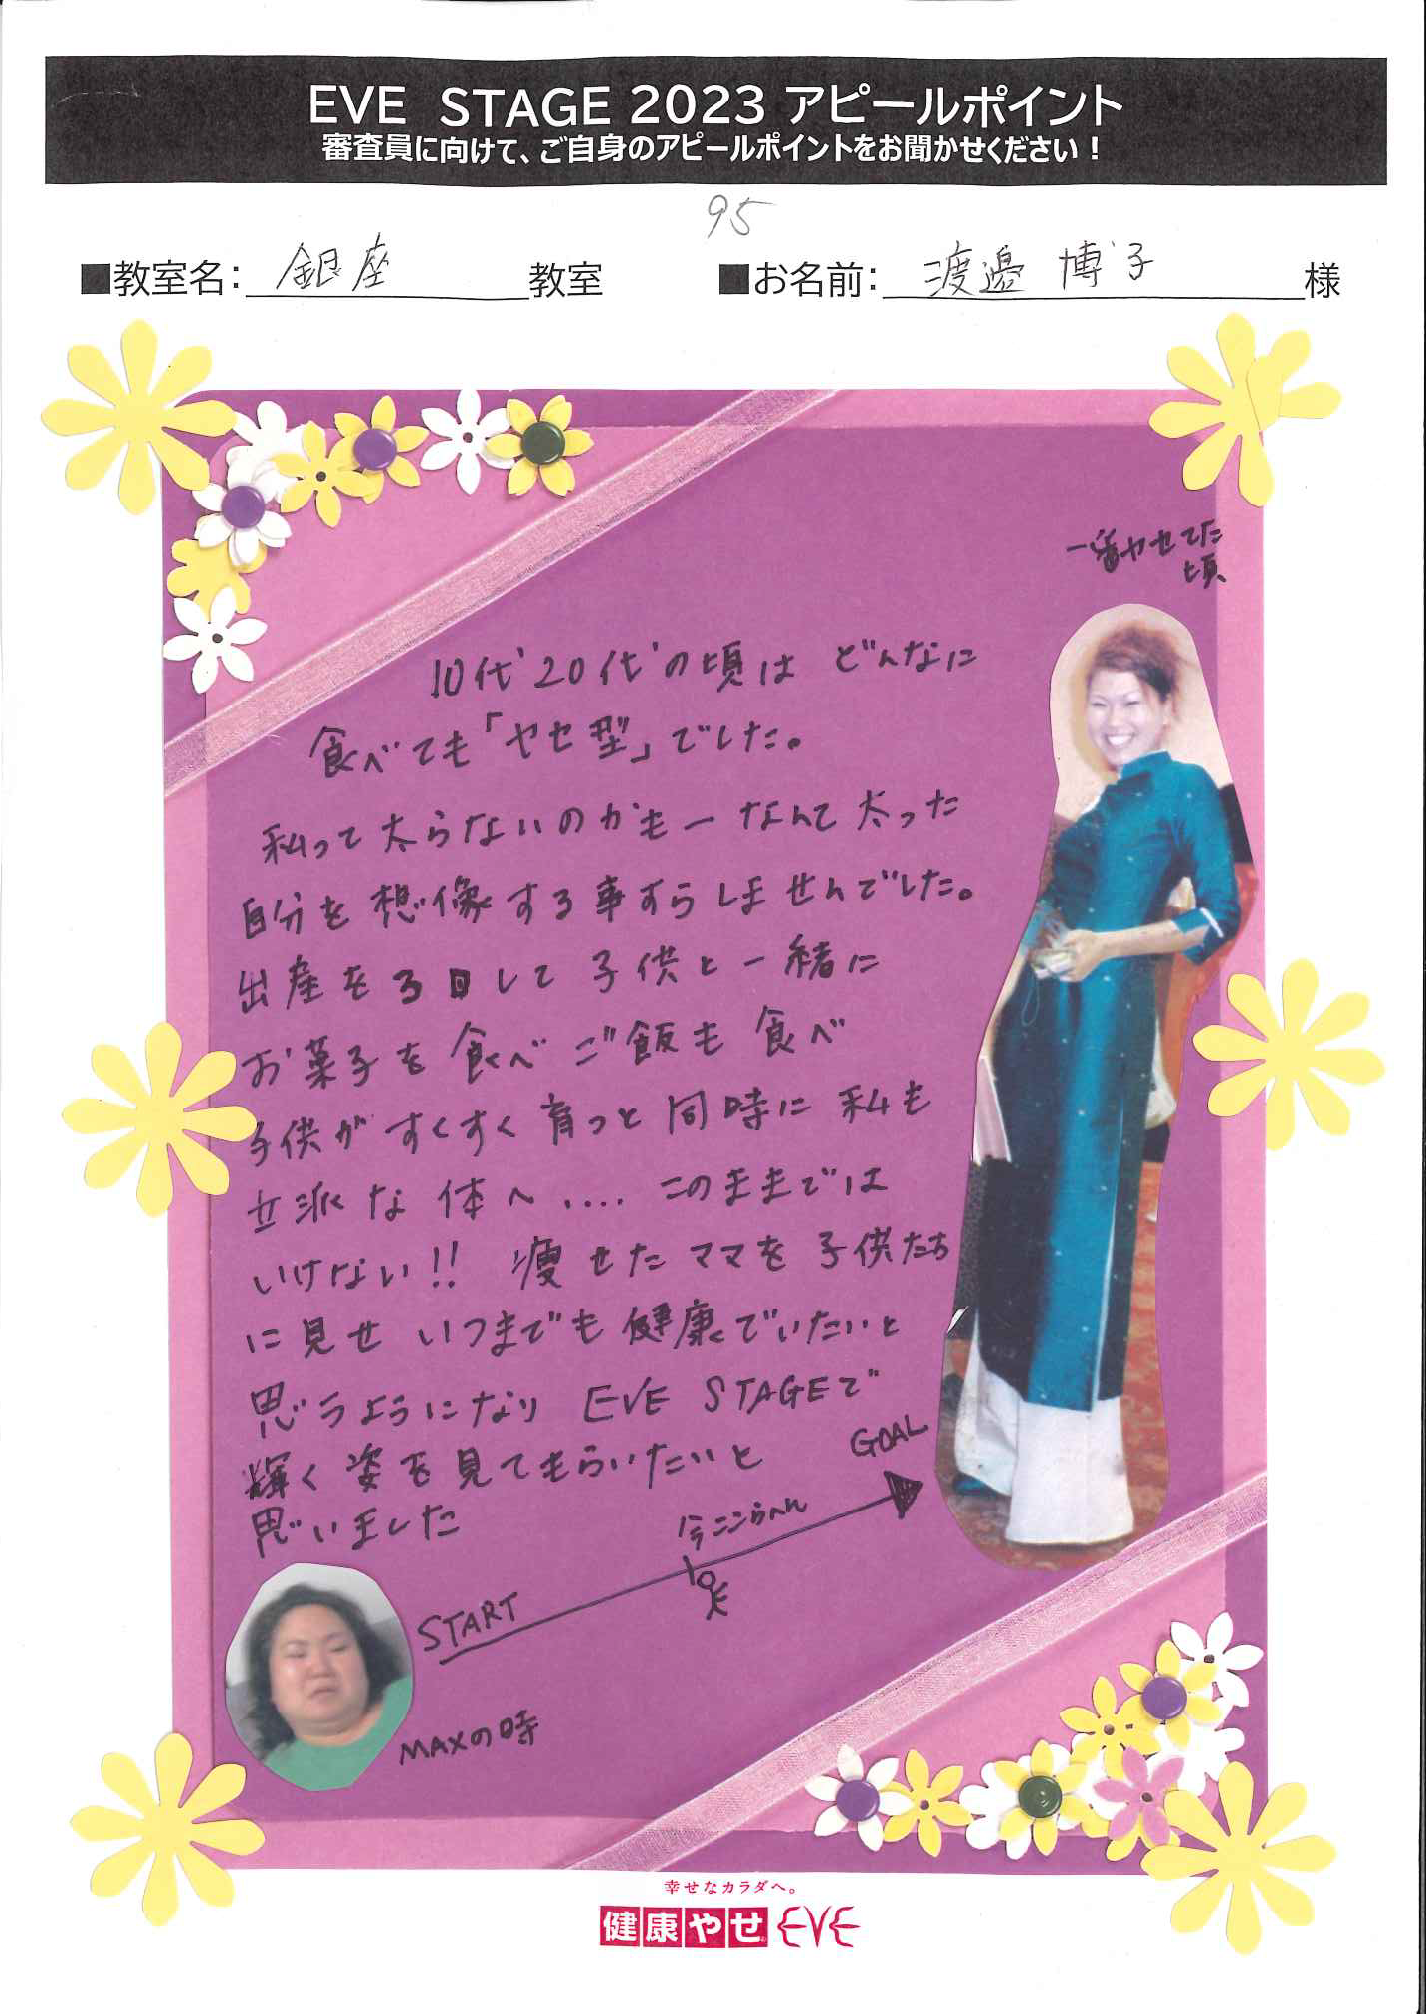 EVE STAGE 2023 アピールポイント
審査員に向けて、ご自身のアピールポイントをお聞かせください！
95
■教室名: 銀座 教室 ■お名前: 渡邉 博子 様
一番ヤセてた
頃
10代 20代の頃は どんなに
食べても「ヤセ型」でした。
私って太らないのかもーなんて太った
自分を想像する事すらしませんでした。
出産を3回して子供と一緒に
お菓子を食べご飯も食べ
子供がすくすく育つと同時に私も
立派な体へ....このままでは
いけない!! 痩せたママを子供たち
に見せいつまでも健康でいたいと
思うようになり EVE STAGEで
輝く姿を見てもらいたいと
思いました
GOAL
今ココらへん
START
MAXの時
幸せなカラダへ。
健康やせ EVE